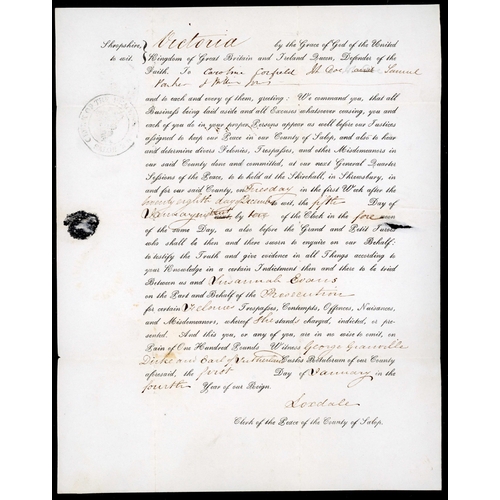 Shropshire, Victoria by the Grace of God of the United
to wit. Kingdom of Great Britain and Ireland Queen, Defender of the
Faith. To Caroline Corfield Samuel
Parker
and to each and every of them, greeting: We command you, that all
Business being laid aside and all Excuses whatsoever ceasing, you and
each of you do in your proper Persons appear as well before our Justices
assigned to keep our Peace in our County of Salop, and also to hear
and determine divers Felonies, Trespasses, and other Misdemeanors in
our said County done and committed, at our next General Quarter
Sessions of the Peace, to be held at the Shirehall, in Shrewsbury, in
and for our said County, on Tuesday in the first Week after the
twenty eighth day of December to wit, the fifth Day of
January by of the Clock in the fore noon
of the same Day, as also before the Grand and Petit Juries
who shall be then and there sworn to enquire on our Behalf:
to testify the Truth and give evidence in all Things according to
your Knowledge in a certain Indictment then and there to be tried
Between us and Susannah Evans
on the Part and Behalf of the Prosecution
for certain Felonies Trespasses, Contempts, Offences, Nuisances,
and Misdemeanors, whereof She stands charged, indicted, or pre-
sented. And this you, or any of you, are in no wise to omit, on
Pain of One Hundred Pounds Witness George Granville
Duke and Earl of Sutherland Custos Rotulorum of our County
aforesaid, the first Day of January in the
fourth Year of our Reign.
Loxdale
Clerk of the Peace of the County of Salop.